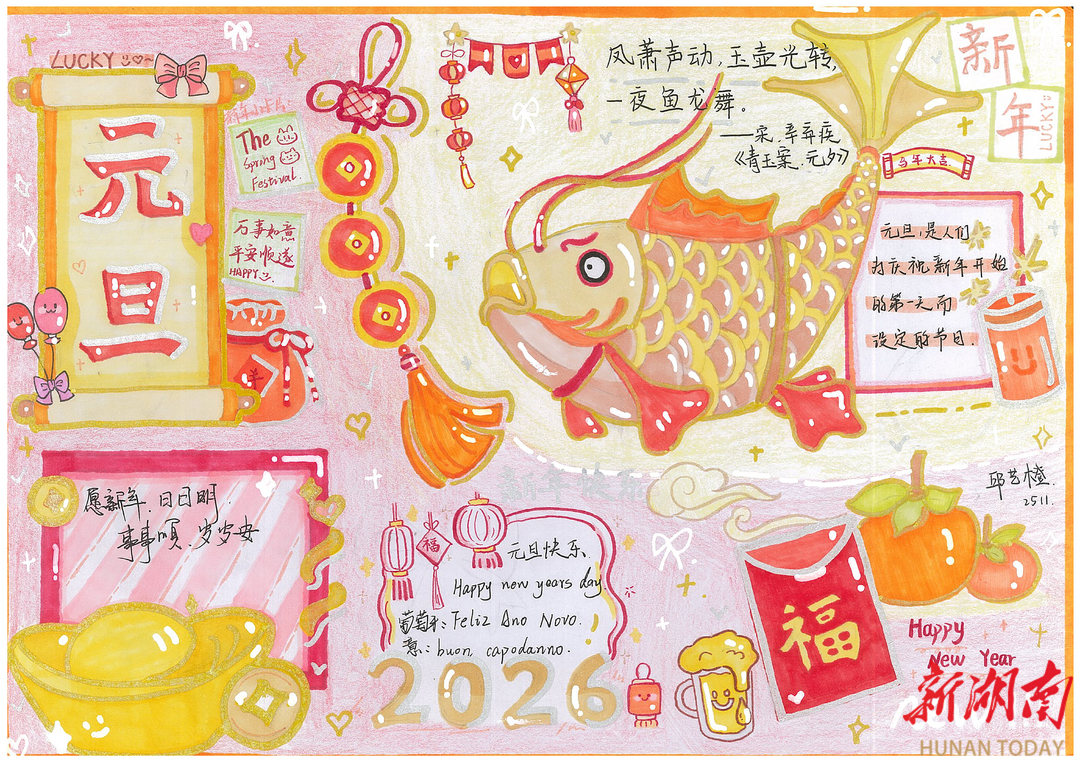 LUCKY
元旦
The
Spring
Festival.
万事如意
平安顺遂
HAPPY
羊
凤萧声动,玉壶光转,
一夜鱼龙舞。
——宋.辛弃疾
《青玉案.元夕》
新
年
LUCKY
马年大吉
元旦,是人们
为庆祝新年开始
的第一天而
设定的节日.
愿新年,日日明.
事事顺、岁岁安
福
元旦快乐、
Happy new years day.
葡萄牙:Feliz Ano Novo.
意:buon capodanno.
2026
福
邱艺橙.
2511.
Happy
New Year
新湖南
HUNAN TODAY